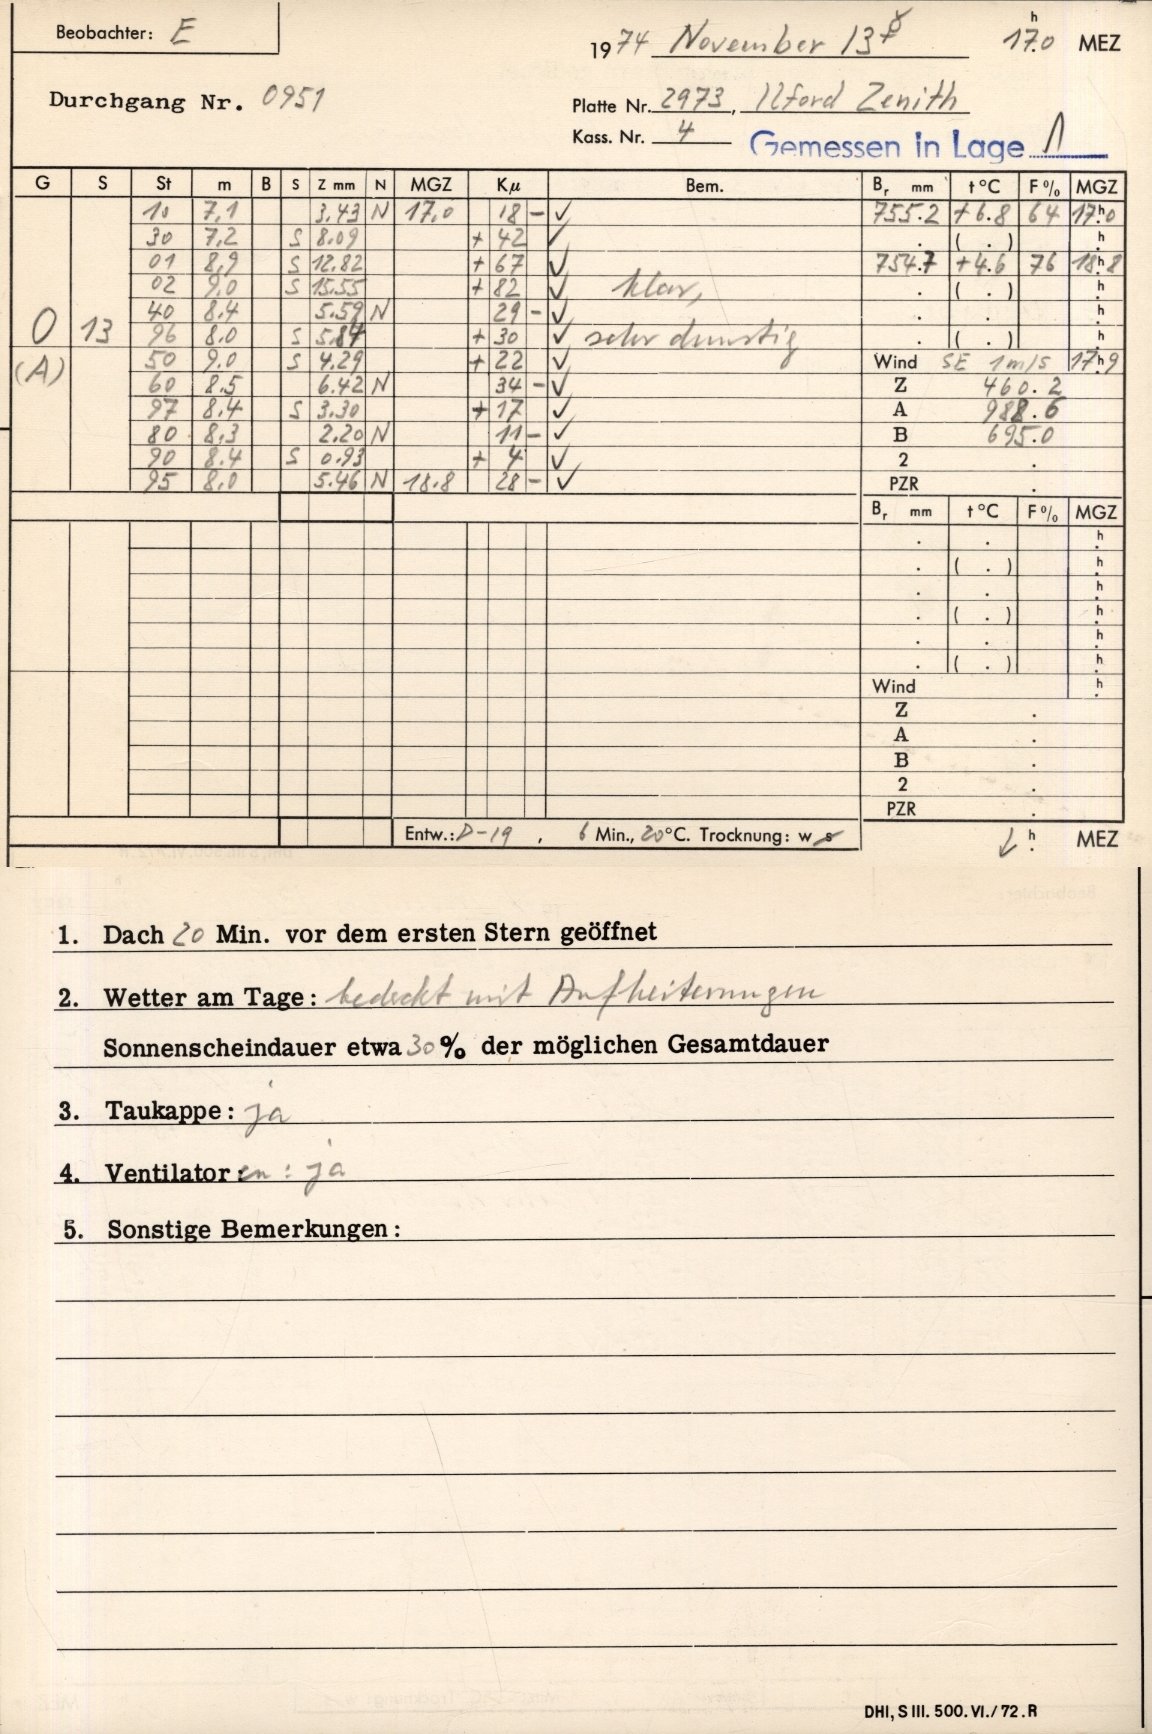 Beobachter: E
1974 November 13 ☿ 17.0 h MEZ
Durchgang Nr. 0951
Platte Nr. 2973, Ilford Zenith
Kass. Nr. 4 Gemessen in Lage 1
G S St m B S Z mm N MGZ Kμ Bem. Br mm t °C F % MGZ
10 7,1 3.43 N 17,0 18 - ✓ 755.2 +6.8 64 17h.0
30 7,2 S 8.09 + 42 ✓ . ( . ) h.
01 8,9 S 12.82 + 67 ✓ 754.7 +4.6 76 18h.8
02 9,0 S 15.55 + 82 ✓ klar, . ( . ) h.
40 8.4 5.59 N 29 - ✓ . . h.
O 13 96 8.0 S 5.84 + 30 ✓ sehr dunstig . ( . ) h.
(A) 50 9.0 S 4.29 + 22 ✓ Wind SE 1 m/s 17h.9
60 8.5 6.42 N 34 - ✓ Z 460.2
97 8.4 S 3.30 + 17 ✓ A 988.6
80 8,3 2.20 N 11 - ✓ B 695.0
90 8.4 S 0.93 + 4 ✓ 2 .
95 8,0 5.46 N 18.8 28 - ✓ PZR .
Br mm t °C F % MGZ
. . h.
. ( . ) h.
. . h.
. ( . ) h.
. . h.
. ( . ) h.
Wind h.
Z .
A .
B .
2 .
PZR .
Entw.: D-19 , 6 Min., 20 °C. Trocknung: w s h. MEZ
1. Dach 20 Min. vor dem ersten Stern geöffnet
2. Wetter am Tage: bedeckt mit Aufheiterungen
Sonnenscheindauer etwa 30 % der möglichen Gesamtdauer
3. Taukappe: ja
4. Ventilator:en: ja
5. Sonstige Bemerkungen:
DHI, S III. 500. VI./72. R